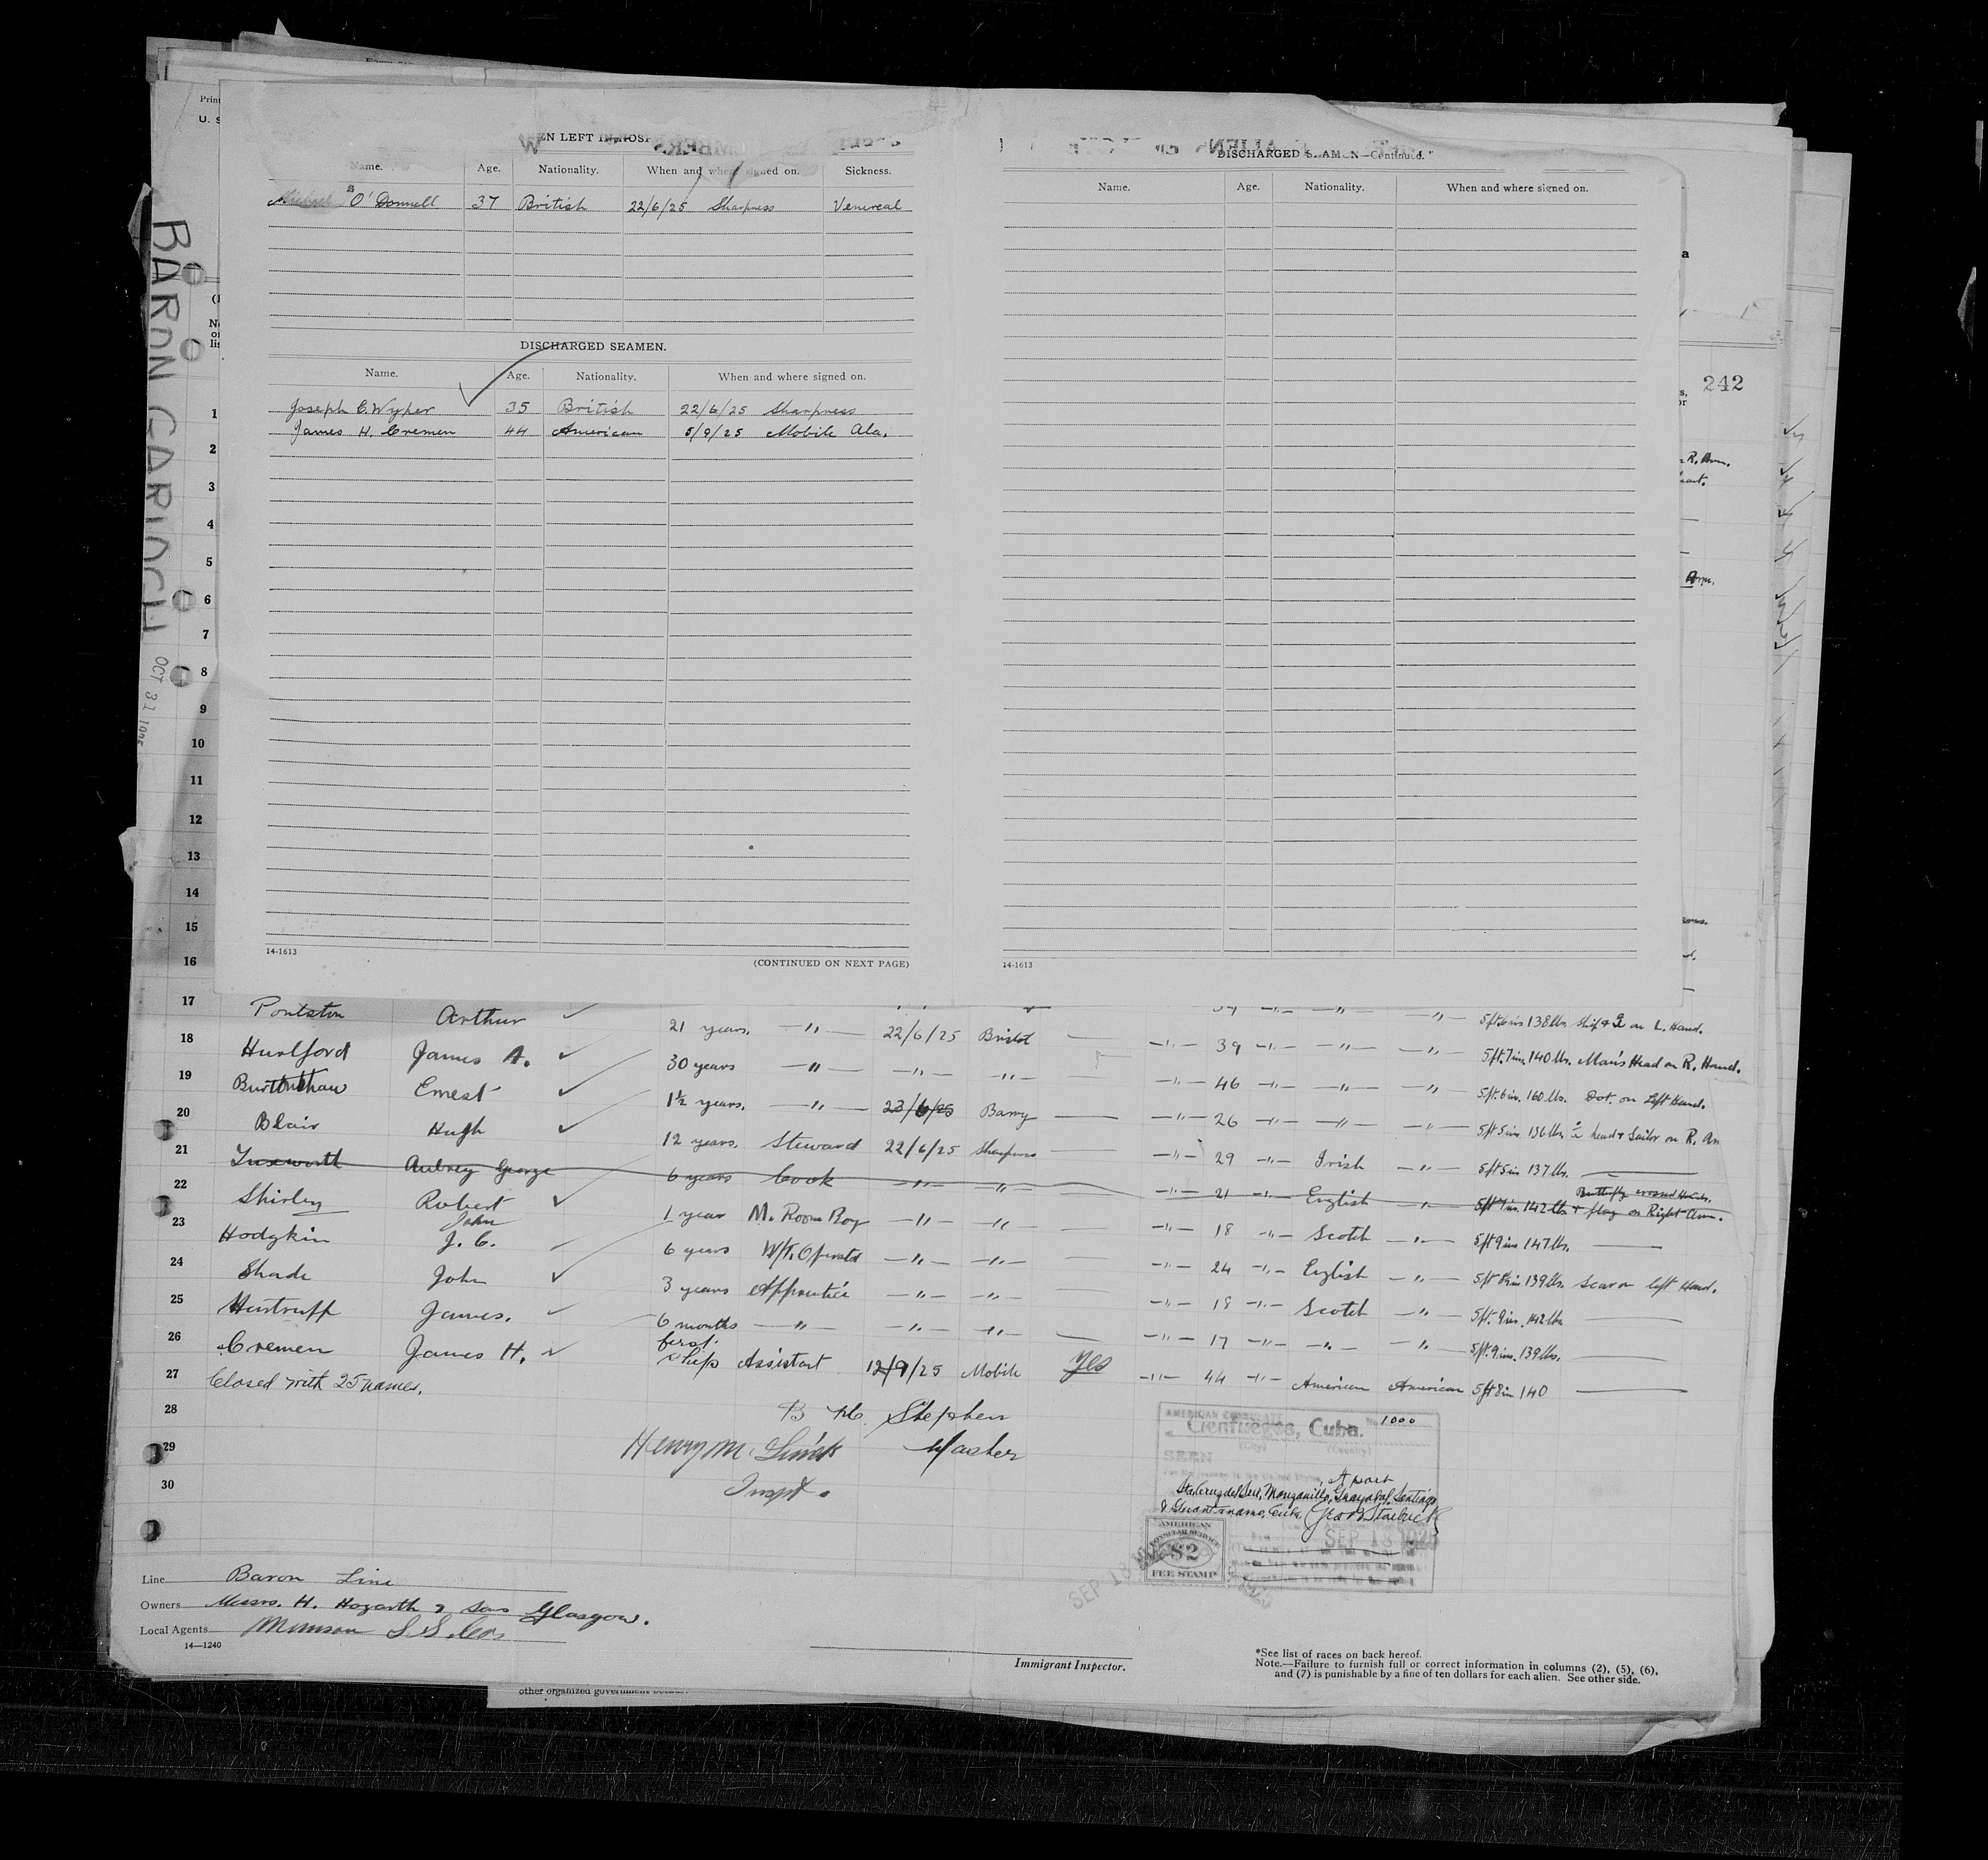 Print
U. S
EN LEFT IN HOSP
Name. Age. Nationality. When and where signed on. Sickness.
O'Donnell 37 British 22/6/25 Sharpness Venereal
DISCHARGED SEAMEN.
Name. Age. Nationality. When and where signed on.
Joseph C. Wyper 35 British 22/6/25 Sharpness
James H. Cremen 44 American 5/9/25 Mobile Ala.
14-1613
(CONTINUED ON NEXT PAGE)
DISCHARGED SEAMEN—Continued.
Name. Age. Nationality. When and where signed on.
14-1613
BARON GARIOCH OCT 31
242
R. Arm.
Arm.
1
2
3
4
5
6
7
8
9
10
11
12
13
14
15
16
17 Poulston Arthur 21 years. —"— 22/6/25 Bristol 5ft.6ins 138 lbs. on L. Hand.
18 Hurlford James A. 30 years —"— —"— —"— —"— 39 —"— —"— —"— 5ft.7ins. 140 lbs. Man's Head on R. Hand.
19 Ernest 1½ years. —"— 23/6/25 Barry —"— 46 —"— —"— —"— 5ft.6in. 160 lbs. Dot. on Left Hand.
20 Blair Hugh 12 years. Steward 22/6/25 Sharpness —"— 26 —"— —"— —"— 5ft 5ins 136 lbs. head & Sailor on R. Arm
21 Tuxworth Aubrey George 6 years Cook —"— —"— —"— 29 —"— Irish —"— 5ft 5in 137 lbs.
22 Shirley Robert 1 year M. Room Boy —"— —"— —"— 21 —"— English —"— 142 lbs Butterfly flag on Right Arm.
23 Hodgkin John J. C. 6 years W/T. Operator —"— —"— —"— 18 —"— Scotch —"— 5ft 9ins 147 lbs.
24 Shade John 3 years Apprentice —"— —"— —"— 24 —"— English —"— 139 lbs. Scar on left Hand.
25 James. 6 months —"— —"— —"— —"— 18 —"— Scotch —"— 5ft. 9ins. 142 lbs
26 Cremen James H. first. ship Assistant 12/9/25 Mobile Yes —"— 17 —"— —"— —"— 5ft. 9ins. 139 lbs.
27 Closed with 25 names. —"— 44 —"— American American 5ft 8in 140
28 Stephen
29 Henry M. Master
30 Inspt.
AMERICAN CONSULATE No. 1000
Cienfuegos, Cuba.
(City) (Country)
SEEN
Sta. Cruz del Sur, Manzanillo, Guayabal, Santiago
& Guantanamo, Cuba.
SEP 18 1925
AMERICAN
CONSULAR SERVICE
$2
FEE STAMP
SEP 18
Line Baron Line
Owners Messrs. H. Hogarth & Sons Glasgow.
Local Agents Munson S.S. Co.
14—1240
Immigrant Inspector.
*See list of races on back hereof.
Note.—Failure to furnish full or correct information in columns (2), (5), (6),
and (7) is punishable by a fine of ten dollars for each alien. See other side.
other organized government